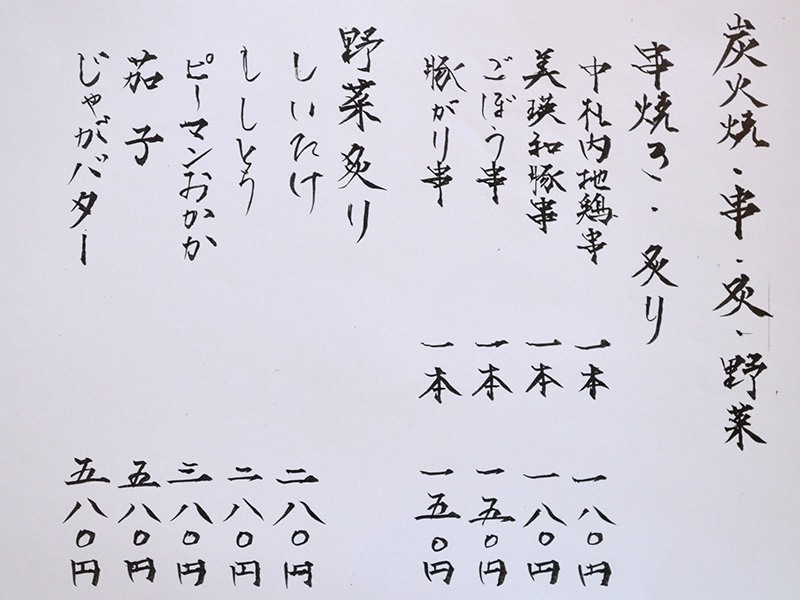 炭火焼・串・炙・野菜
串焼き・炙り
中札内地鶏串 一本 一八〇円
美瑛和豚串 一本 一八〇円
ごぼう串 一本 一五〇円
豚がり串 一本 一五〇円
野菜炙り
しいたけ 二八〇円
ししとう 二八〇円
ピーマンおかか 三八〇円
茄子 五八〇円
じゃがバター 五八〇円